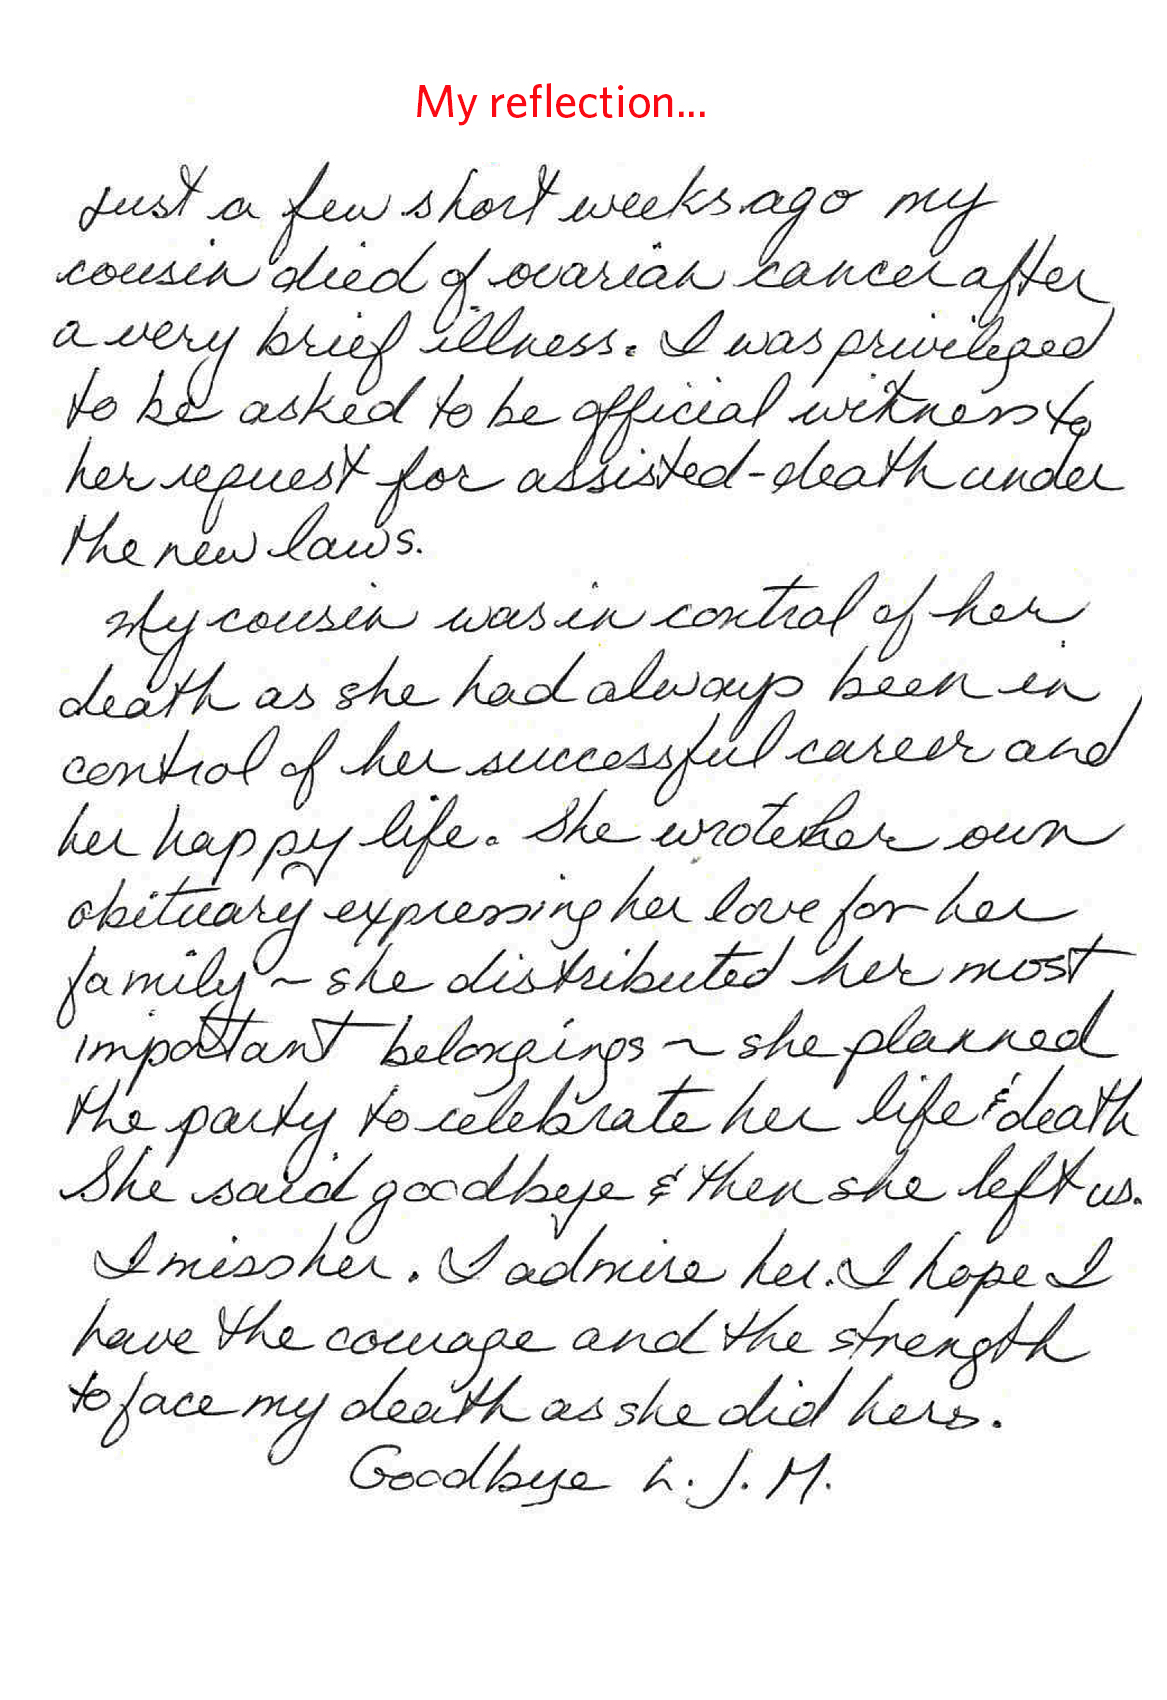 My reflection...
Just a few short weeks ago my
cousin died of ovarian cancer after
a very brief illness. I was privileged
to be asked to be official witness to
her request for assisted-death under
the new laws.
My cousin was in control of her
death as she had always been in
control of her successful career and
her happy life. She wrote her own
obituary expressing her love for her
family ~ she distributed her most
important belongings ~ she planned
the party to celebrate her life & death
She said goodbye & then she left us.
I miss her. I admire her. I hope I
have the courage and the strength
to face my death as she did hers.
Goodbye L. J. M.